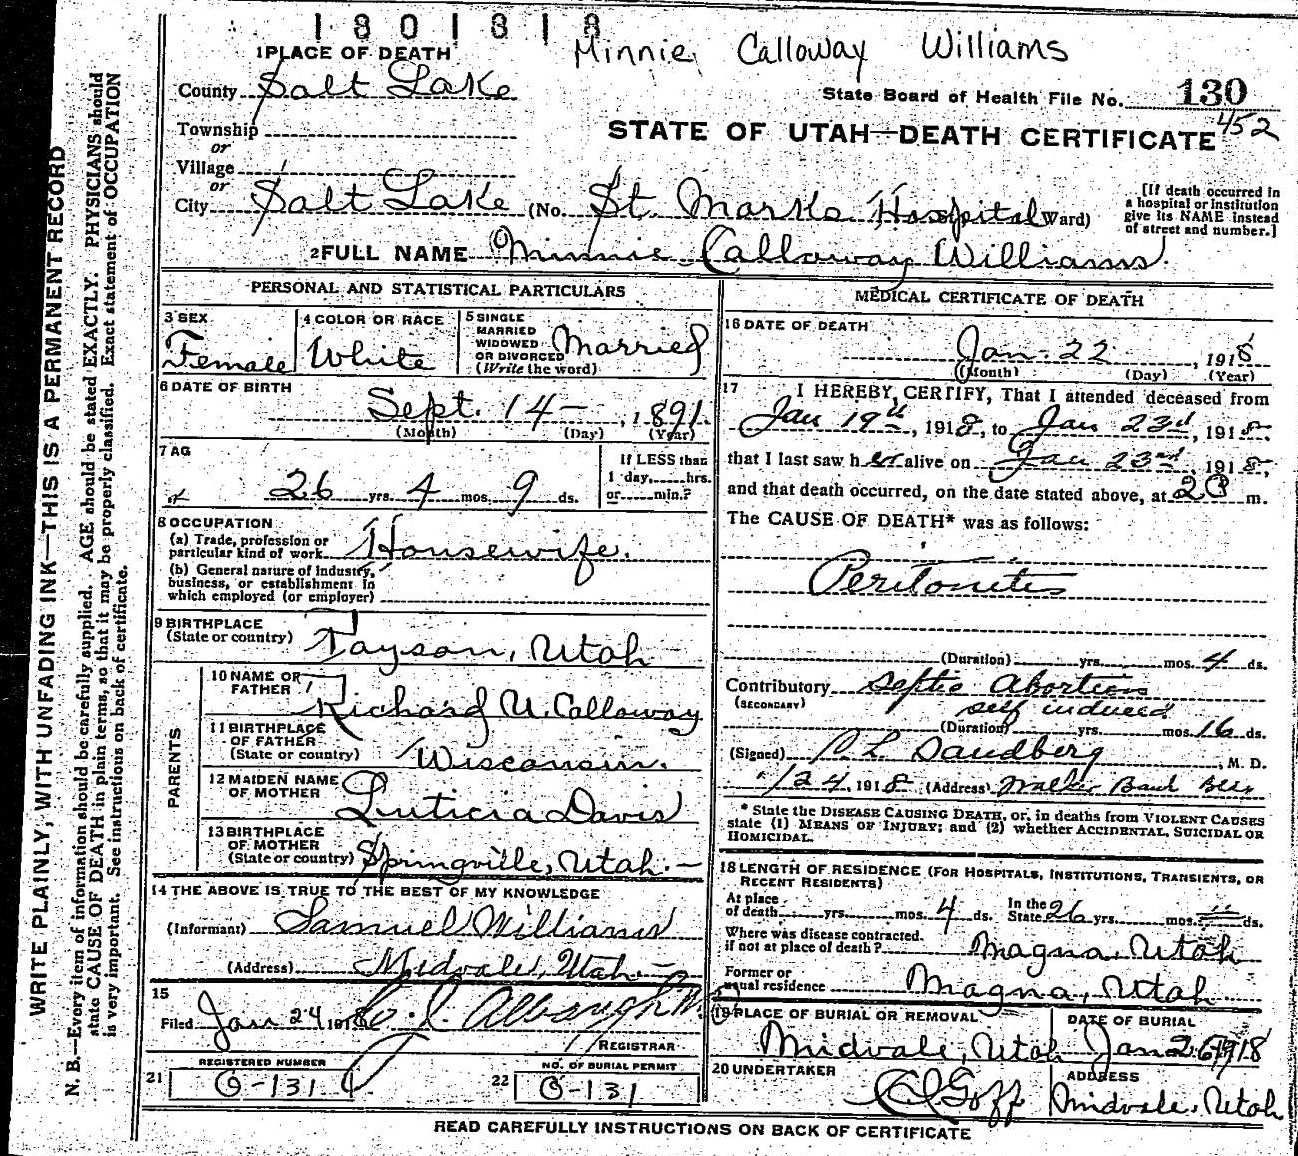 1801818
Minnie Calloway Williams
1 PLACE OF DEATH
County Salt Lake
State Board of Health File No. 130
452
Township
or
STATE OF UTAH—DEATH CERTIFICATE
Village
or
City Salt Lake (No. St. Marks Hospital Ward)
[If death occurred in a hospital or institution give its NAME instead of street and number.]
2 FULL NAME Minnie Calloway Williams.
PERSONAL AND STATISTICAL PARTICULARS
3 SEX
Female
4 COLOR OR RACE
White
5 SINGLE
MARRIED
WIDOWED
OR DIVORCED
(Write the word)
Married
6 DATE OF BIRTH
Sept. 14 — , 1891.
(Month) (Day) (Year)
7 AG
26 yrs. 4 mos. 9 ds.
If LESS than
1 day, hrs.
or min.?
8 OCCUPATION
(a) Trade, profession or
particular kind of work Housewife.
(b) General nature of industry,
business, or establishment in
which employed (or employer)
9 BIRTHPLACE
(State or country) Payson, Utah
PARENTS
10 NAME OF
FATHER
Richard U. Calloway
11 BIRTHPLACE
OF FATHER
(State or country) Wisconsin.
12 MAIDEN NAME
OF MOTHER
Luticia Davis
13 BIRTHPLACE
OF MOTHER
(State or country) Springville, Utah. —
14 THE ABOVE IS TRUE TO THE BEST OF MY KNOWLEDGE
(Informant) Samuel Williams
(Address) Midvale, Utah —
15
Filed Jan 24 1918
REGISTRAR
REGISTERED NUMBER
21 O-131
NO. OF BURIAL PERMIT
22 O-131
MEDICAL CERTIFICATE OF DEATH
16 DATE OF DEATH
Jan. 22 , 1918
(Month) (Day) (Year)
17 I HEREBY CERTIFY, That I attended deceased from
Jan 19th, 1918, to Jan 23d, 1918,
that I last saw her alive on Jan 23rd, 1918,
and that death occurred, on the date stated above, at m.
The CAUSE OF DEATH* was as follows:
Peritonitis
(Duration) yrs. mos. 4 ds.
Contributory Septic Abortion
(SECONDARY) self induced
(Duration) yrs. mos. 16 ds.
(Signed) Sandberg, M. D.
1/24, 1918 (Address) Walker Bank
* State the DISEASE CAUSING DEATH, or, in deaths from VIOLENT CAUSES
state (1) MEANS OF INJURY; and (2) whether ACCIDENTAL, SUICIDAL OR
HOMICIDAL.
18 LENGTH OF RESIDENCE (FOR HOSPITALS, INSTITUTIONS, TRANSIENTS, OR
RECENT RESIDENTS)
At place
of death yrs. mos. 4 ds.
In the
State 26 yrs. mos. ds.
Where was disease contracted.
if not at place of death? Magna, Utah
Former or
usual residence Magna, Utah.
19 PLACE OF BURIAL OR REMOVAL
Midvale, Utah
DATE OF BURIAL
Jan 26 1918
20 UNDERTAKER
Goff
ADDRESS
Midvale, Utah
READ CAREFULLY INSTRUCTIONS ON BACK OF CERTIFICATE
WRITE PLAINLY, WITH UNFADING INK—THIS IS A PERMANENT RECORD
N. B.—Every item of information should be carefully supplied. AGE should be stated EXACTLY. PHYSICIANS should
state CAUSE OF DEATH in plain terms, so that it may be properly classified. Exact statement of OCCUPATION
is very important. See instructions on back of certificate.